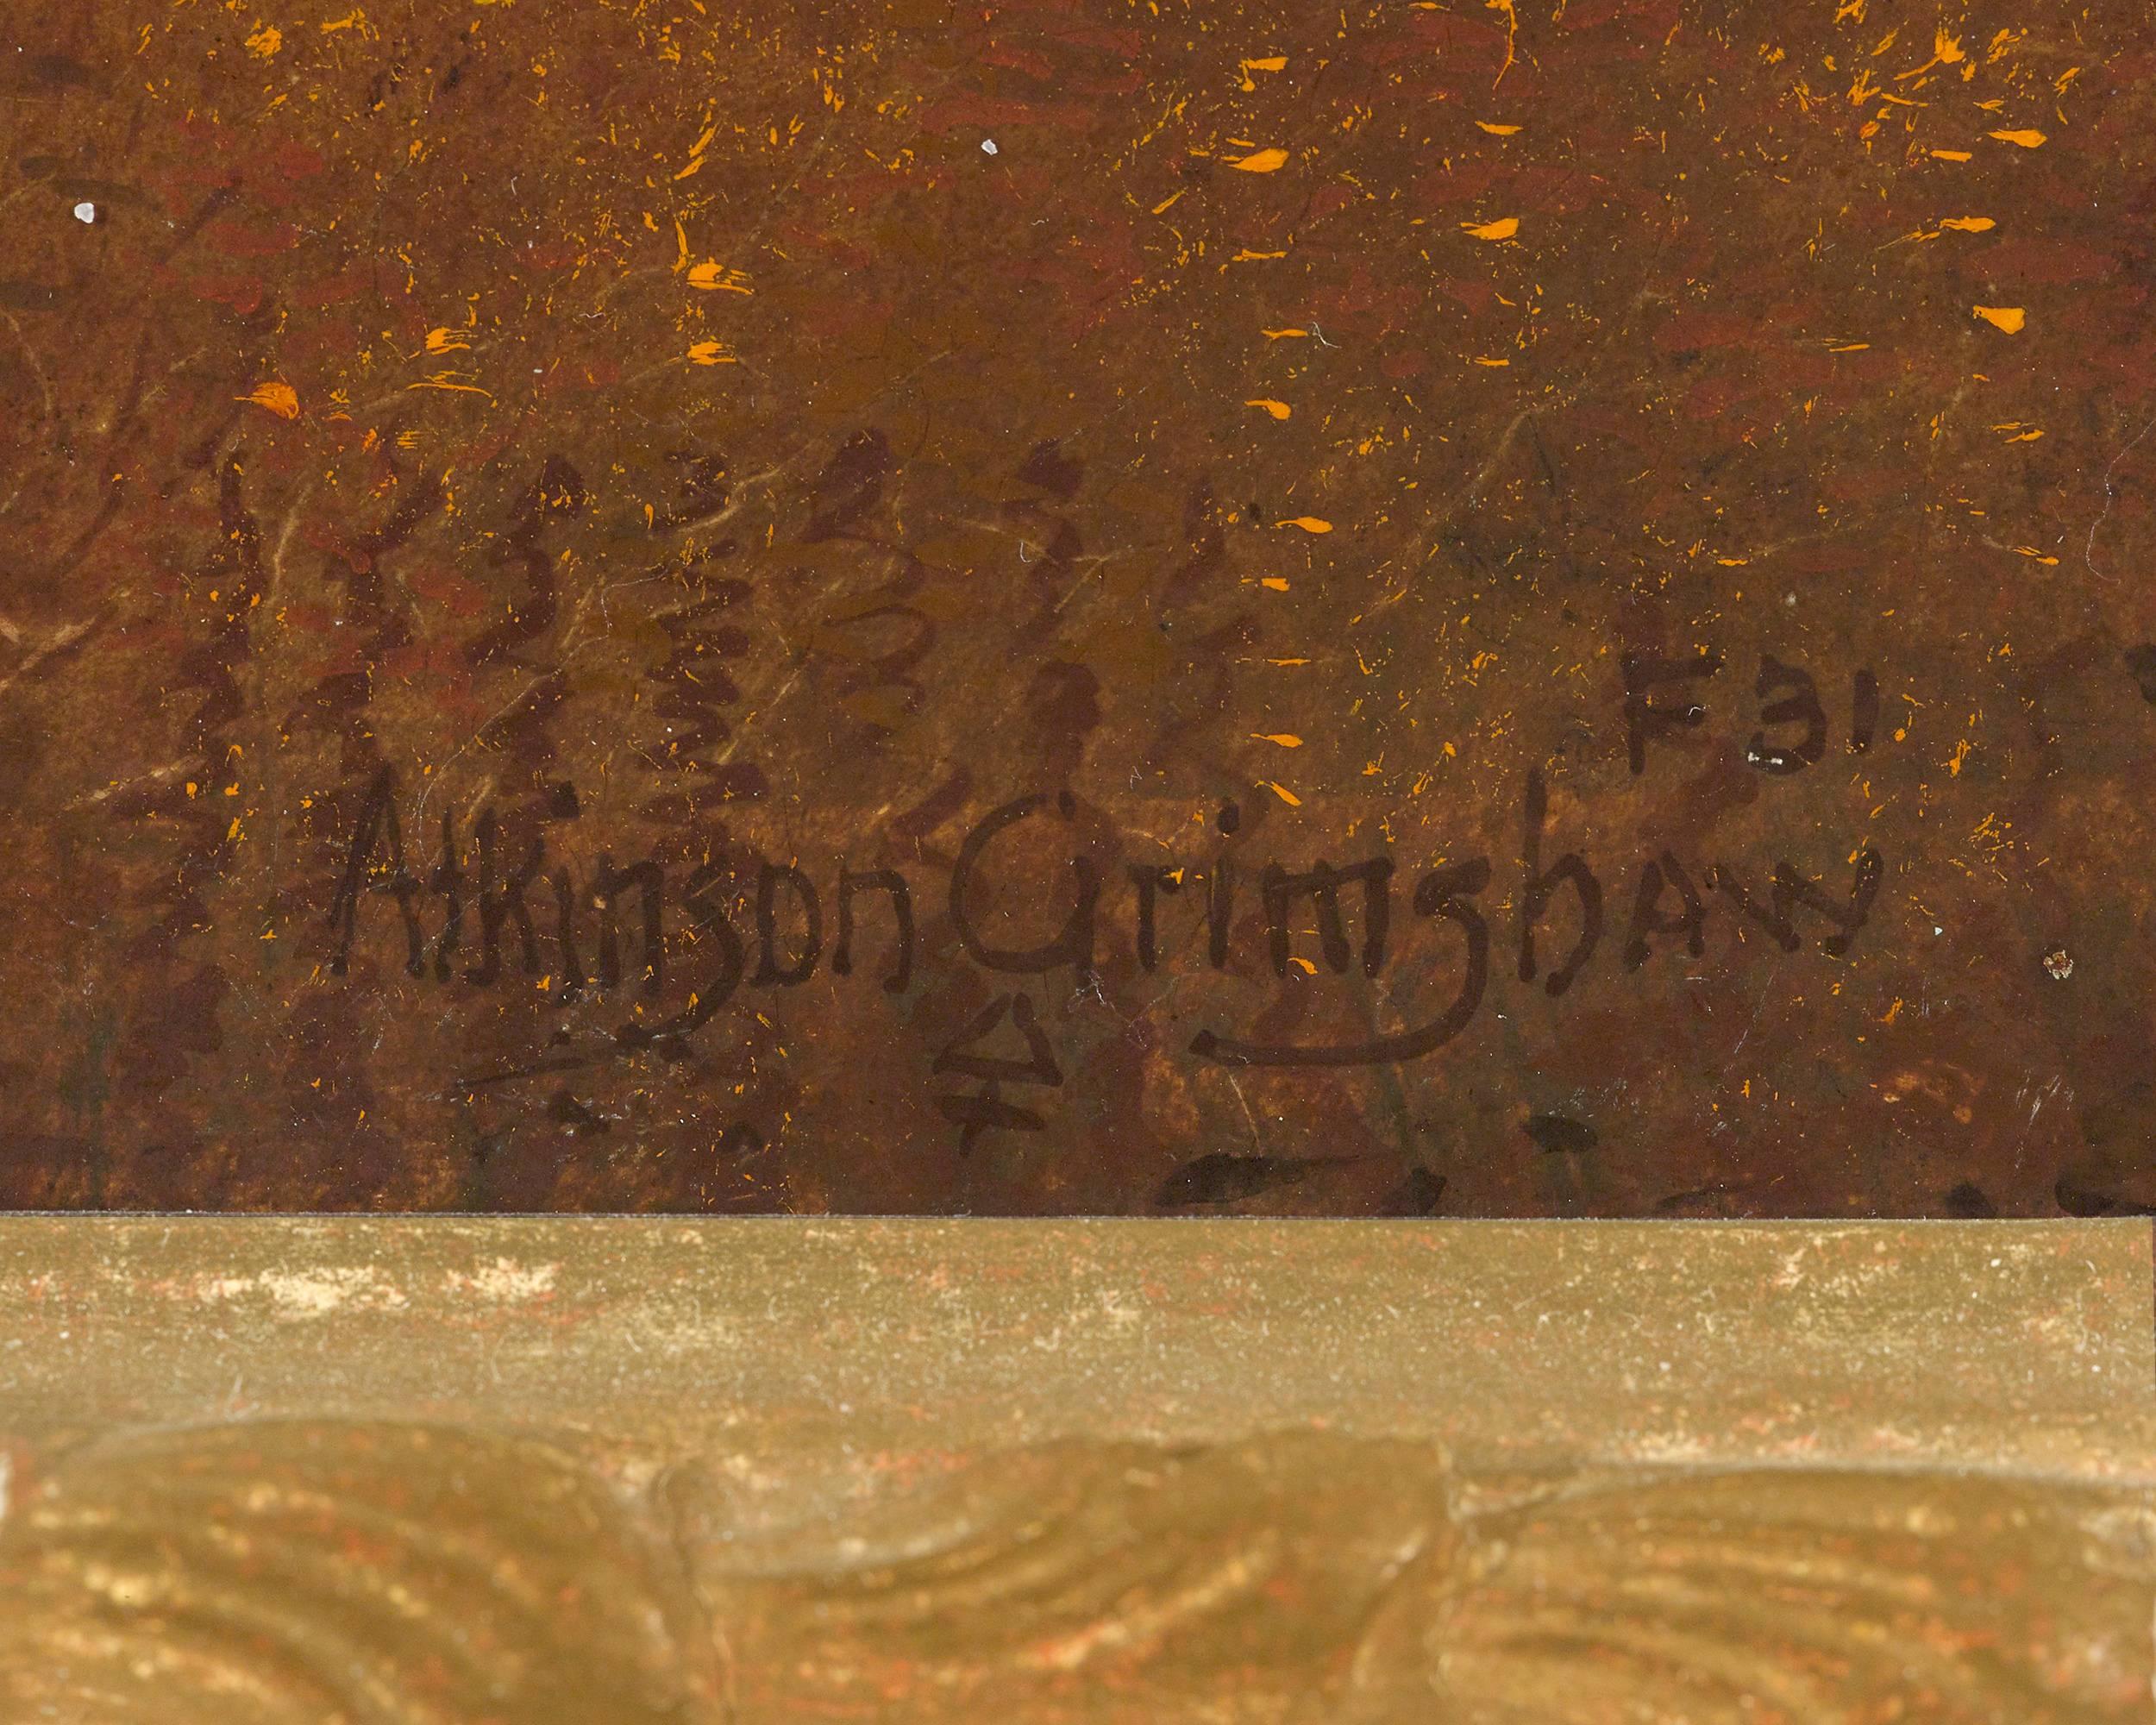 F31
Atkinson Grimshaw